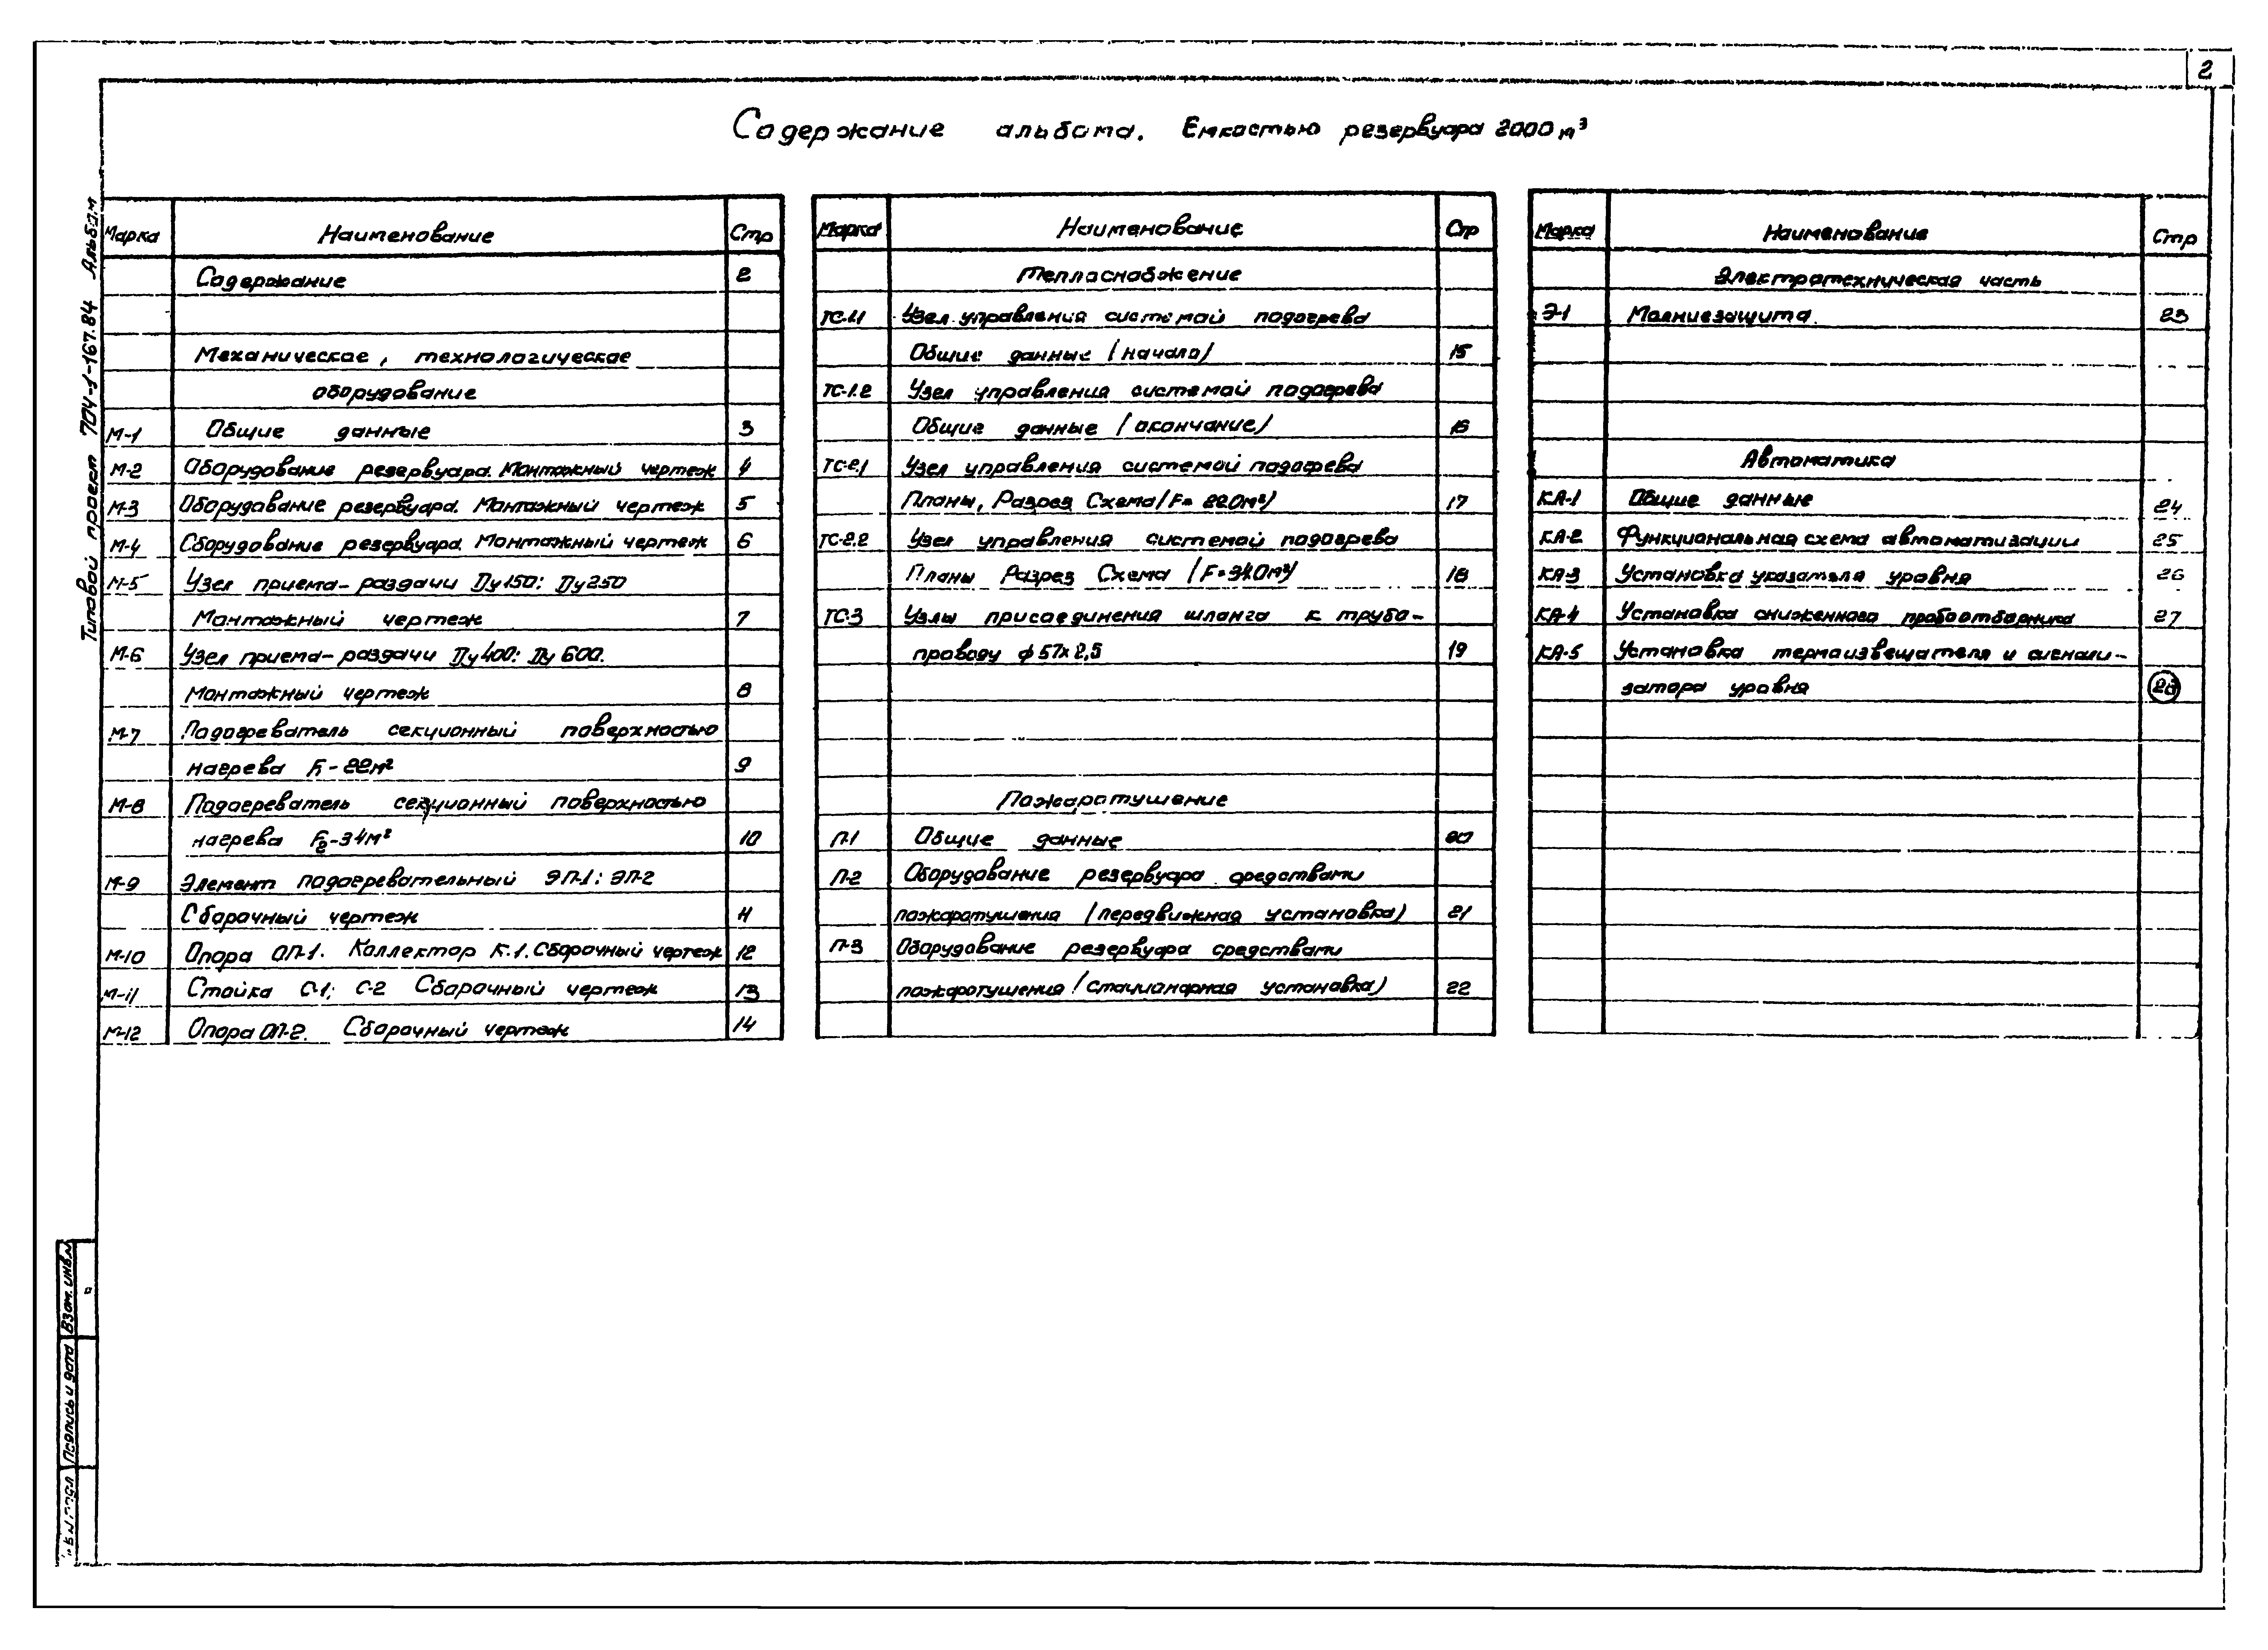 2
Содержание альбома. Емкостью резервуара 2000 м³
Типовой проект 704-1-167.84 Альбом
Марка Наименование Стр
Содержание 2
Механическое, технологическое
оборудование
М-1 Общие данные 3
М-2 Оборудование резервуара. Монтажный чертеж 4
М-3 Оборудование резервуара. Монтажный чертеж 5
М-4 Оборудование резервуара. Монтажный чертеж 6
М-5 Узел приема-раздачи Ду150; Ду250
Монтажный чертеж 7
М-6 Узел приема-раздачи Ду400; Ду 600.
Монтажный чертеж 8
М-7 Подогреватель секционный поверхностью
нагрева F₁-22м² 9
М-8 Подогреватель секционный поверхностью
нагрева F₂-34м² 10
М-9 Элемент подогревательный ЭП-1; ЭП-2
Сборочный чертеж 11
М-10 Опора ОП-1. Коллектор К-1. Сборочный чертеж 12
М-11 Стойка С-1; С-2 Сборочный чертеж 13
М-12 Опора ОП-2. Сборочный чертеж 14
Марка Наименование Стр
Теплоснабжение
ТС-1.1 Узел управления системой подогрева
Общие данные (начало) 15
ТС-1.2 Узел управления системой подогрева
Общие данные (окончание) 16
ТС-2.1 Узел управления системой подогрева
Планы, Разрез Схема (F= 22.0м²) 17
ТС-2.2 Узел управления системой подогрева
Планы Разрез Схема (F=34.0м²) 18
ТС-3 Узлы присоединения шланга к трубо-
проводу ф 57х2,5 19
Пожаротушение
П-1 Общие данные 20
П-2 Оборудование резервуара средствами
пожаротушения (передвижная установка) 21
П-3 Оборудование резервуара средствами
пожаротушения (стационарная установка) 22
Марка Наименование Стр
Электротехническая часть
Э-1 Молниезащита. 23
Автоматика
КА-1 Общие данные 24
КА-2 Функциональная схема автоматизации 25
КА-3 Установка указателя уровня 26
КА-4 Установка сниженного пробоотборника 27
КА-5 Установка термоизвещателя и сигнали-
затора уровня 28
Взам. инв.№
Подпись и дата